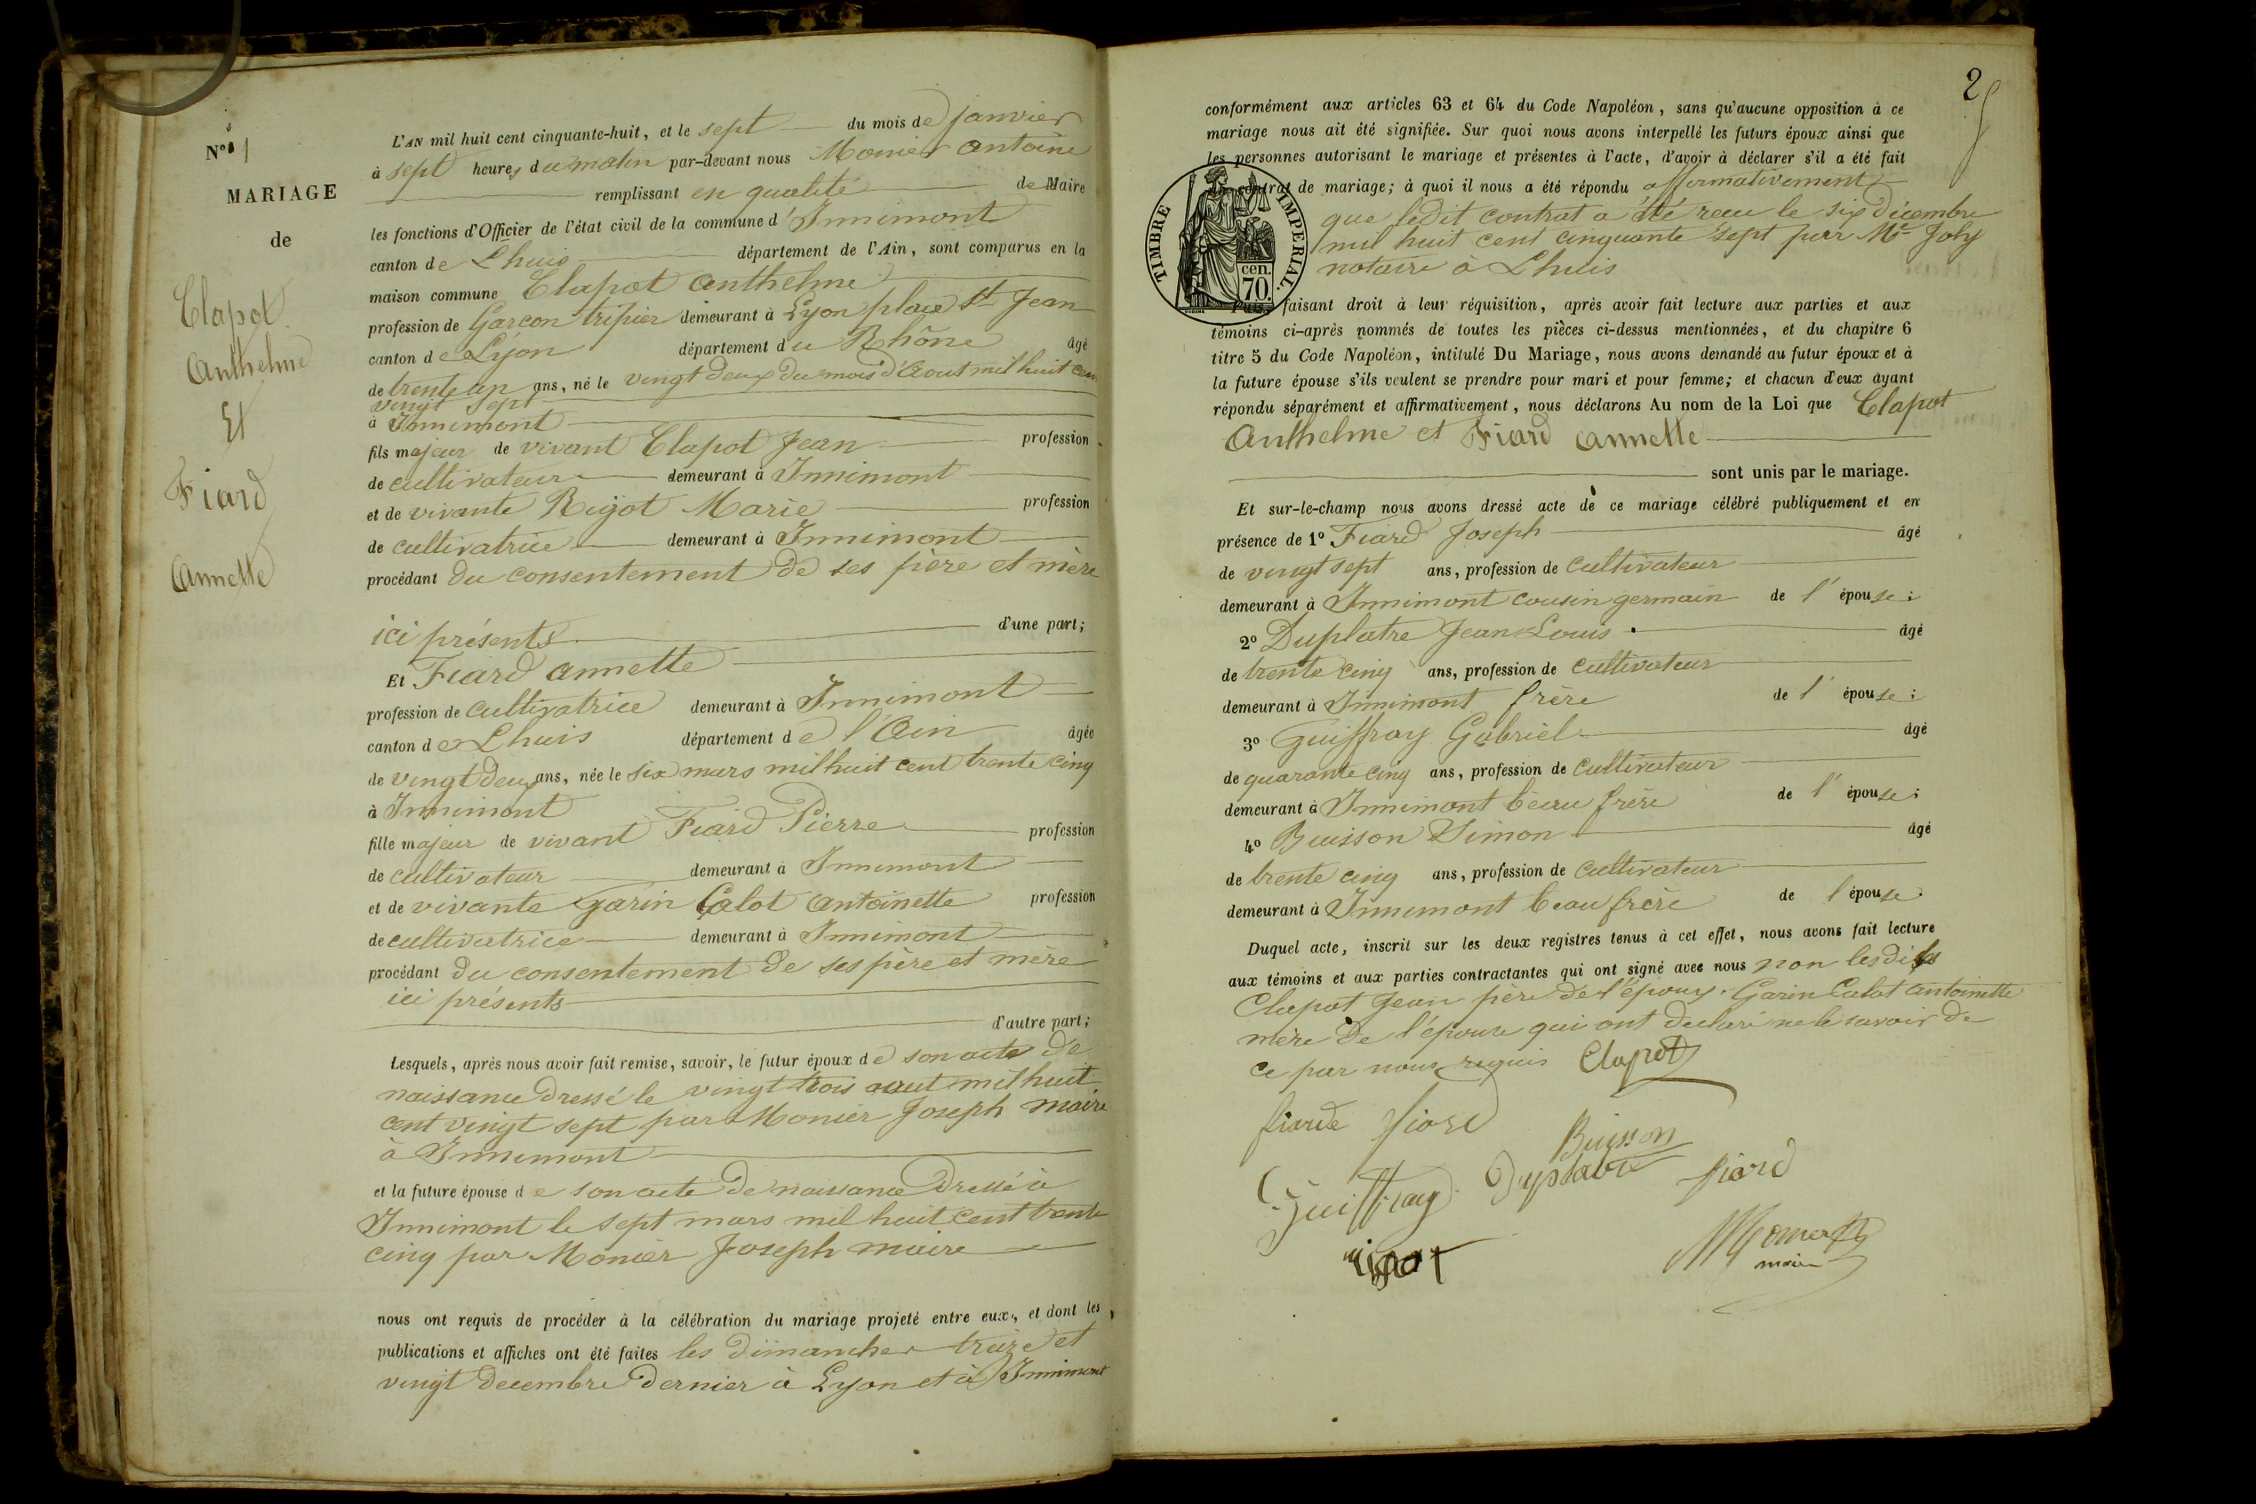 N° 1
MARIAGE
de
Clapot
Anthelme
Et
Fiard
Annette
L'AN mil huit cent cinquante-huit, et le sept du mois de janvier
à sept heures du matin par-devant nous Monier Antoine
remplissant en qualité de Maire
les fonctions d'Officier de l'état civil de la commune d'Innimont
canton de Lhuis département de l'Ain, sont comparus en la
maison commune Clapot Anthelme
profession de Garçon tripier demeurant à Lyon place St Jean
canton de Lyon département du Rhône âgé
de trente un ans, né le vingt deux du mois d'Aout mil huit cent
vingt sept
à Innimont
fils majeur de vivant Clapot Jean profession
de cultivateur demeurant à Innimont
et de vivante Rigot Marie profession
de cultivatrice demeurant à Innimont
procédant du consentement de ses père et mère
ici présents d'une part;
Et Fiard Annette
profession de cultivatrice demeurant à Innimont
canton de Lhuis département de l'Ain âgée
de vingt deux ans, née le six mars mil huit cent trente cinq
à Innimont
fille majeur de vivant Fiard Pierre profession
de cultivateur demeurant à Innimont
et de vivante Garin Calot Antoinette profession
de cultivatrice demeurant à Innimont
procédant du consentement de ses père et mère
ici présents
d'autre part;
Lesquels, après nous avoir fait remise, savoir, le futur époux de son acte de
naissance dressé le vingt trois aout mil huit
cent vingt sept par Monier Joseph maire
à Innimont
et la future épouse de son acte de naissance dressé à
Innimont le sept mars mil huit cent trente
cinq par Monier Joseph maire
nous ont requis de procéder à la célébration du mariage projeté entre eux, et dont les
publications et affiches ont été faites les dimanches treize et
vingt decembre dernier à Lyon et à Innimont
2
conformément aux articles 63 et 64 du Code Napoléon, sans qu'aucune opposition à ce
mariage nous ait été signifiée. Sur quoi nous avons interpellé les futurs époux ainsi que
les personnes autorisant le mariage et présentes à l'acte, d'avoir à déclarer s'il a été fait
contrat de mariage; à quoi il nous a été répondu affirmativement
que ledit contrat a été reçu le six décembre
mil huit cent cinquante sept par Me Joly
notaire à Lhuis
TIMBRE IMPERIAL.
70 cen.
faisant droit à leur réquisition, après avoir fait lecture aux parties et aux
témoins ci-après nommés de toutes les pièces ci-dessus mentionnées, et du chapitre 6
titre 5 du Code Napoléon, intitulé Du Mariage, nous avons demandé au futur époux et à
la future épouse s'ils veulent se prendre pour mari et pour femme; et chacun d'eux ayant
répondu séparément et affirmativement, nous déclarons Au nom de la Loi que Clapot
Anthelme et Fiard Annette
sont unis par le mariage.
Et sur-le-champ nous avons dressé acte de ce mariage célébré publiquement et en
présence de 1° Fiard Joseph âgé
de vingt sept ans, profession de cultivateur
demeurant à Innimont cousin germain de l'épouse;
2° Duplatre Jean Louis âgé
de trente cinq ans, profession de cultivateur
demeurant à Innimont frère de l'épouse;
3° Guiffray Gabriel âgé
de quarante cinq ans, profession de cultivateur
demeurant à Innimont beau frère de l'épouse;
4° Buisson Simon âgé
de trente cinq ans, profession de cultivateur
demeurant à Innimont beau frère de l'épouse
Duquel acte, inscrit sur les deux registres tenus à cet effet, nous avons fait lecture
aux témoins et aux parties contractantes qui ont signé avec nous non lesdits
Clapot Jean père de l'époux. Garin Calot Antoinette
mère de l'épouse qui ont declaré ne le savoir de
ce par nous requis Clapot
fiarde fiard
Buisson
Guiffray Duplatre fiard
rigot
Monier
maire